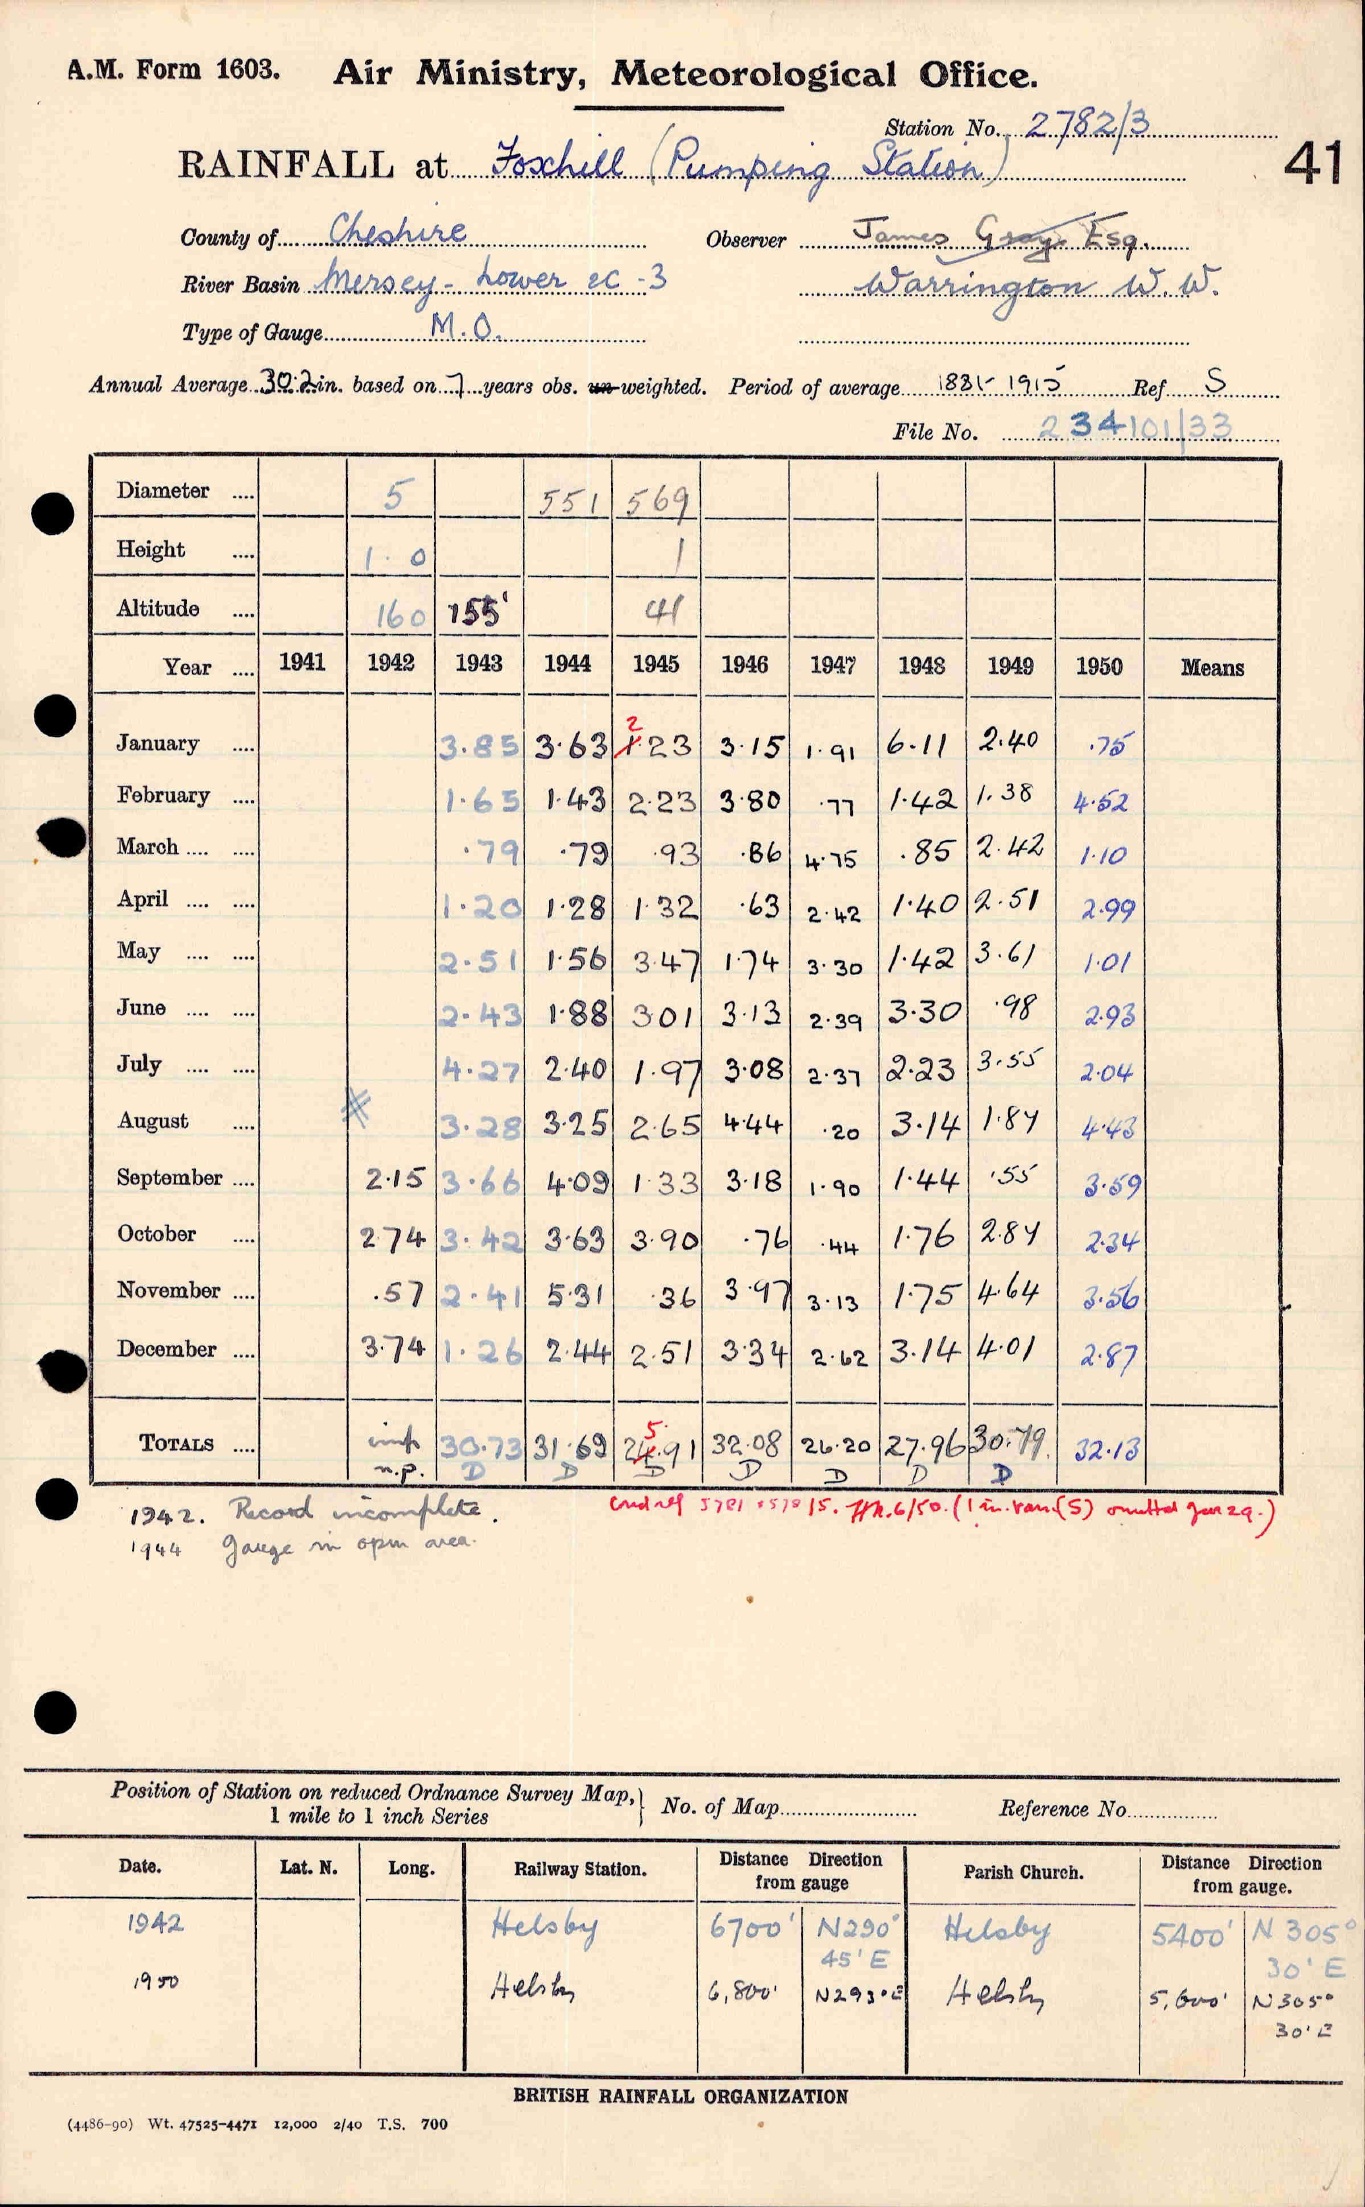 A.M. Form 1603. Air Ministry, Meteorological Office.
Station No. 2782/3
41
RAINFALL at Foxhill (Pumping Station)
County of Cheshire Observer James Gray Esq.
River Basin Mersey - Lower 2C -3 Warrington W.W.
Type of Gauge M.O.
Annual Average 30.2 in. based on 7 years obs. un-weighted. Period of average 1881-1915 Ref S
File No. 234101/33
Diameter .... 5 551 569
Height .... 1.0 1
Altitude .... 160 155' 41
Year .... 1941 1942 1943 1944 1945 1946 1947 1948 1949 1950 Means
2
January .... 3.85 3.63 1.23 3.15 1.91 6.11 2.40 .75
February .... 1.65 1.43 2.23 3.80 .77 1.42 1.38 4.52
March .... .... .79 .79 .93 .86 4.75 .85 2.42 1.10
April .... .... 1.20 1.28 1.32 .63 2.42 1.40 2.51 2.99
May .... .... 2.51 1.56 3.47 1.74 3.30 1.42 3.61 1.01
June .... .... 2.43 1.88 3.01 3.13 2.39 3.30 .98 2.93
July .... .... 4.27 2.40 1.97 3.08 2.37 2.23 3.55 2.04
August .... 3.28 3.25 2.65 4.44 .20 3.14 1.87 4.43
September .... 2.15 3.66 4.09 1.33 3.18 1.90 1.44 .55 3.59
October .... 2.74 3.42 3.63 3.90 .76 .44 1.76 2.87 2.34
November .... .57 2.41 5.31 .36 3.97 3.13 1.75 4.64 3.56
December .... 3.74 1.26 2.44 2.51 3.34 2.62 3.14 4.01 2.87
5
TOTALS .... 30.73 31.69 24.91 32.08 26.20 27.96 30.79 32.13
n.p. D D D D D D D
1942. Record incomplete.
6/50. (1 in. rain (S) omitted Jan 29.)
1944 Gauge in open area.
Position of Station on reduced Ordnance Survey Map,
1 mile to 1 inch Series
No. of Map Reference No.
Date. Lat. N. Long. Railway Station. Distance Direction from gauge Parish Church. Distance Direction from gauge.
1942 Helsby 6700' N290° 45' E Helsby 5400' N 305° 30' E
1950 Helsby 6,800' N293°E Helsby 5,600' N305° 30' E
BRITISH RAINFALL ORGANIZATION
(4486-90) Wt. 47525-4471 12,000 2/40 T.S. 700